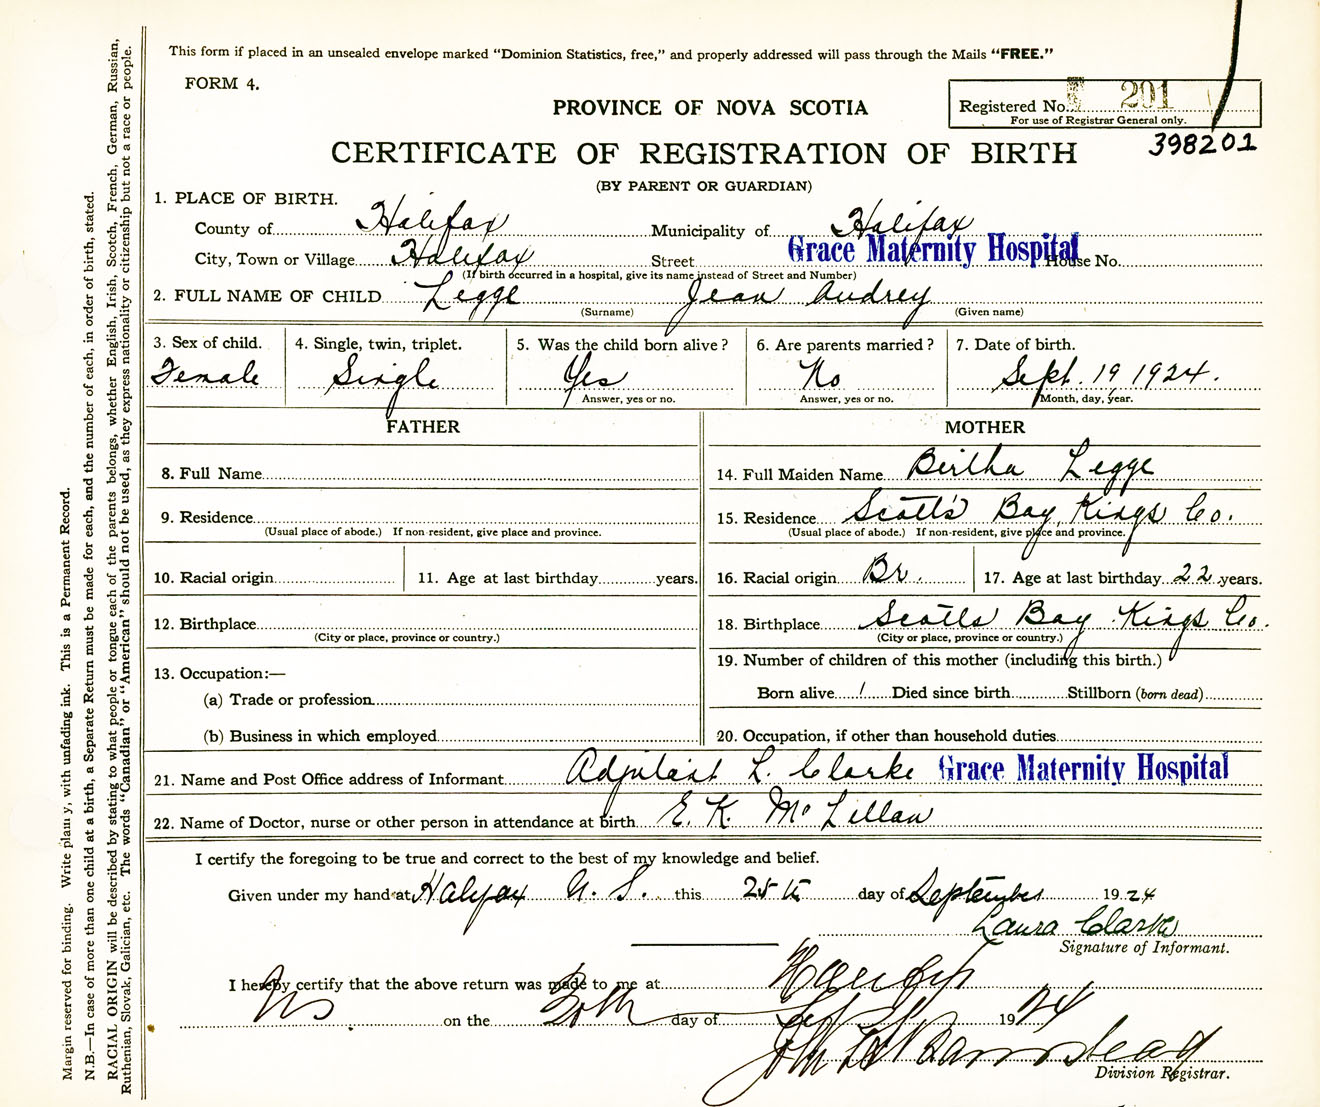 This form if placed in an unsealed envelope marked "Dominion Statistics, free," and properly addressed will pass through the Mails "FREE."
FORM 4.
Registered No. 201
For use of Registrar General only.
PROVINCE OF NOVA SCOTIA
398201
CERTIFICATE OF REGISTRATION OF BIRTH
(BY PARENT OR GUARDIAN)
1. PLACE OF BIRTH.
County of Halifax Municipality of Halifax
City, Town or Village Halifax Street Grace Maternity Hospital House No.
(If birth occurred in a hospital, give its name instead of Street and Number)
2. FULL NAME OF CHILD Legge Jean Audrey
(Surname) (Given name)
3. Sex of child. 4. Single, twin, triplet. 5. Was the child born alive? 6. Are parents married? 7. Date of birth.
Female Single Yes No Sept. 19 1924.
Answer, yes or no. Answer, yes or no. Month, day, year.
FATHER MOTHER
8. Full Name 14. Full Maiden Name Bertha Legge
9. Residence 15. Residence Scott's Bay, Kings Co.
(Usual place of abode.) If non-resident, give place and province. (Usual place of abode.) If non-resident, give place and province.
10. Racial origin 11. Age at last birthday years. 16. Racial origin Br. 17. Age at last birthday 22 years.
12. Birthplace 18. Birthplace Scotts Bay Kings Co.
(City or place, province or country.) (City or place, province or country.)
13. Occupation:— 19. Number of children of this mother (including this birth.)
(a) Trade or profession Born alive 1 Died since birth Stillborn (born dead)
(b) Business in which employed 20. Occupation, if other than household duties
21. Name and Post Office address of Informant Adjutant L. Clarke Grace Maternity Hospital
22. Name of Doctor, nurse or other person in attendance at birth E. K. McLellan
I certify the foregoing to be true and correct to the best of my knowledge and belief.
Given under my hand at Halifax N. S. this 25th day of September 1924
Laura Clarke
Signature of Informant.
I hereby certify that the above return was made to me at Halifax
NS on the 30th day of Sept 1924
Division Registrar.
Margin reserved for binding. Write plainly, with unfading ink. This is a Permanent Record.
N.B.—In case of more than one child at a birth, a Separate Return must be made for each, and the number of each, in order of birth, stated.
RACIAL ORIGIN will be described by stating to what people or tongue each of the parents belongs, whether English, Irish, Scotch, French, German, Russian,
Ruthenian, Slovak, Galician, etc. The words "Canadian" or "American" should not be used, as they express nationality or citizenship but not a race or people.